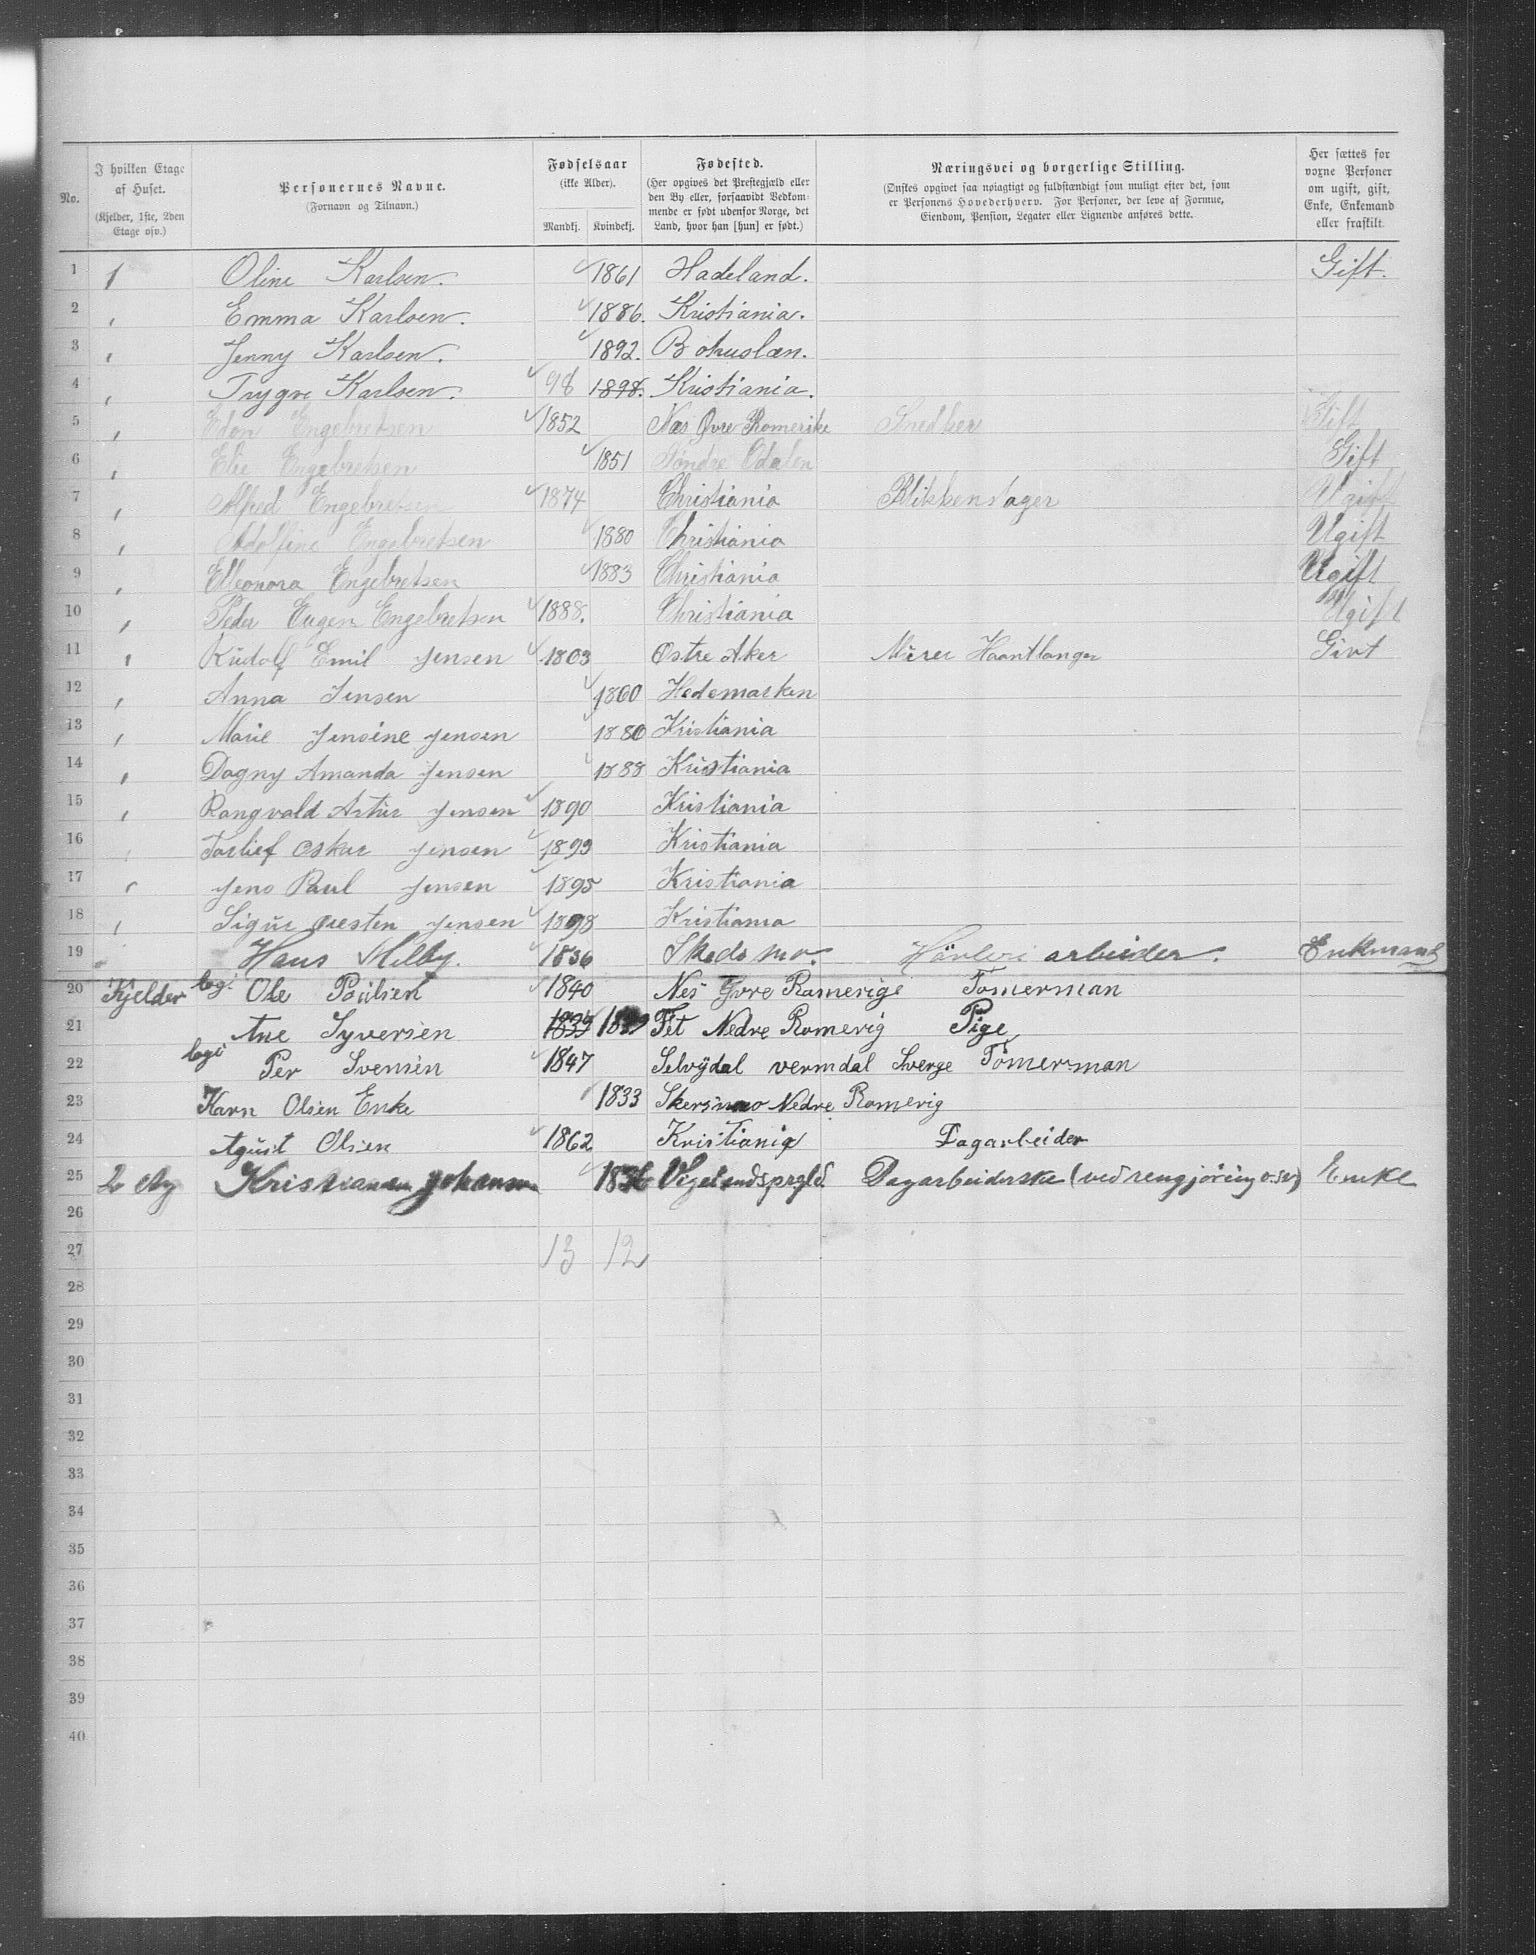 No.
I hvilken Etage af Huset.
(Kjelder, 1ste, 2den Etage osv.)
Personernes Navne.
(Fornavn og Tilnavn.)
Fødselsaar
(ikke Alder).
Mandkj. Kvindekj.
Fødested.
(Her opgives det Prestegjæld eller den By eller, forsaavidt Vedkommende er født udenfor Norge, det Land, hvor han [hun] er født.)
Næringsvei og borgerlige Stilling.
(Ønskes opgivet saa nøiagtigt og fuldstændigt som muligt efter det, som er Personens Hovederhverv. For Personer, der leve af Formue, Eiendom, Pension, Legater eller Lignende anføres dette.
Her sættes for voxne Personer om ugift, gift, Enke, Enkemand eller fraskilt.
1 1 Oline Karlsen. 1861 Hadeland. Gift.
2 " Emma Karlsen. 1886. Kristiania.
3 " Jenny Karlsen. 1892. Bohuslæn.
4 " Trygve Karlsen. 98 1898. Kristiania.
5 " Engebretsen 1852 Næs Øvre Romerike Snedker Gift
6 " Engebretsen 1851 Søndre Odalen Gift
7 " Alfred Engebretsen 1874 Christiania Blikkenslager Ugift
8 " Adolfine Engebretsen 1880 Christiania Ugift
9 " Elleonora Engebretsen 1883 Christiania Ugift
10 " Peder Eugen Engebretsen 1888. Christiania Ugift
11 " Rudolf Emil Jensen 1863 Ostre Aker Murer Haantlanger Givt
12 " Anna Jensen 1860 Hedemarken
13 " Marie Jensine Jensen 1880 Kristiania
14 " Dagny Amanda Jensen 1888 Kristiania
15 " Rangvald Artur Jensen 1890 Kristiania
16 " Torlief Oskar Jensen 1893 Kristiania
17 " Jens Paul Jensen 1895 Kristiania
18 " Sigur Jensen 1898 Kristiania
19 " Hans Melby. 1836 Skedsmo. Høvleri arbeider. Enkemand
20 Kjelder logi Ole Poulsen 1840 Nes Øvre Ramerige Tømerman
21 Ane Syversen 1839 1839 Fet Nedre Romerig Pige
22 logi Per Svensen 1847 vermdal Sverge Tømerman
23 Karn Olsen Enke 1833 Skersmo Nedre Romerig
24 Agust Olsen 1862 Kristiania Dagarbeider
25 2 Etg Kristianea Johansen 1836 Vigelandsprgld. Dagarbeiderske (ved rengjøring o.sv) Enke
26
27 13 12
28
29
30
31
32
33
34
35
36
37
38
39
40